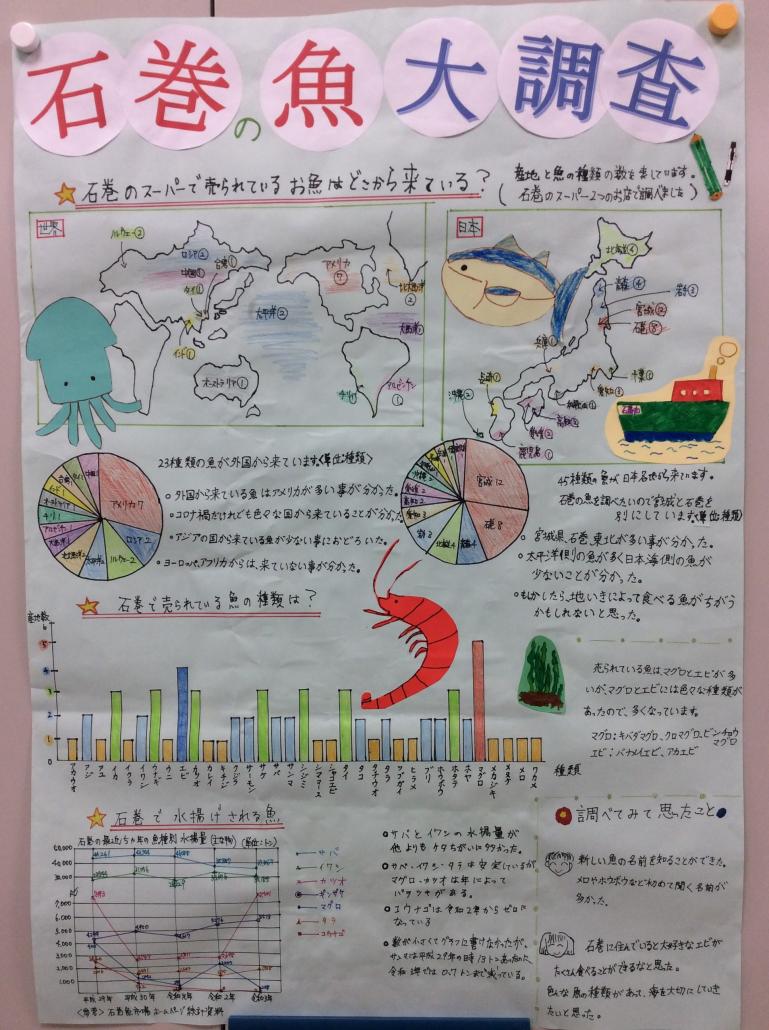 石巻の魚大調査
石巻のスーパーで売られているお魚はどこから来ている?
産地と魚の種類の数を表しています。
(石巻のスーパー2つのお店で調べました)
世界
ノルウェー②
ロシア②
中国①
台湾①
タイ①
インド①
太平洋②
オーストラリア①
アメリカ⑦
チリ①
アルゼンチン①
大西洋①
日本
北海道④
青森④
岩手③
宮城⑫
石巻⑧
千葉①
愛知③
兵庫①
和歌山①
高知②
愛媛②
長崎①
鹿児島①
沖縄②
アメリカ7
ロシア2
ノルウェー2
太平洋2
北大西洋2
大西洋1
アルゼンチン1
チリ1
オーストラリア1
インド1
台湾1
タイ1
中国1
23種類の魚が外国から来ています。(単位:種類)
○外国から来ている魚はアメリカが多い事が分かった。
○コロナ禍だけれども色々な国から来ていることが分かった。
○アジアの国から来ている魚が少ない事におどろいた。
○ヨーロッパ、アフリカからは、来ていない事が分かった。
宮城12
石巻8
青森4
北海道4
岩手3
愛知3
高知2
愛媛2
沖縄2
45種類の魚が日本各地から来ています。
石巻の魚を調べたいので宮城と石巻を
別にしています。(単位:種類)
○宮城県、石巻、東北が多い事が分かった。
○太平洋側の魚が多く日本海側の魚が
少ないことが分かった。
○もしかしたら、地いきによって食べる魚がちがう
かもしれないと思った。
石巻で売られている魚の種類は?
産地数
6
5
4
3
2
1
0
アカウオ
アジ
アユ
イカ
イクラ
イワシ
ウナギ
ウニ
エビ
カツオ
カレイ
キチジ
クジラ
サーモン
サケ
サバ
サンマ
シジミ
シマホース
シャコエビ
タイ
タコ
タチウオ
タラ
ツブガイ
ヒラメ
ブリ
ホウボウ
ホタテ
ホヤ
マグロ
メカジキ
メヌケ
メロ
ワカメ
種類
売られている魚はマグロとエビが多
いが、マグロとエビには色々な種類が
あったので、多くなっています。
マグロ:キバダマグロ、クロマグロ、ビンチョウマグロ
エビ:バナメイエビ、アカエビ
石巻で水揚げされる魚
石巻の最近5ヶ年の魚種別水揚量(主な物)(単位:トン)
50,000
40,000
30,000
5,000
4,000
3,000
2,000
1,000
平成29年
平成30年
令和元年
令和2年
令和3年
サバ
イワシ
カツオ
ギンザケ
マグロ
タラ
コウナゴ
<参考>石巻魚市場ホームページ統計資料
○サバとイワシの水揚量が
他よりもケタちがいに多かった。
○サバ・イワシ・タラは安定しているが
マグロ・カツオは年によって
バラツキがある。
○コウナゴは令和2年からゼロに
なっている
○数が小さくてグラフに書けなかったが、
調べてみて思ったこと
新しい魚の名前を知ることができた。
メロやホウボウなど初めて聞く名前が
多かった。
石巻に住んでいると大好きなエビが
たくさん食べることができるなと思った。
色んな魚の種類があって、海を大切にしていき
たいと思った。